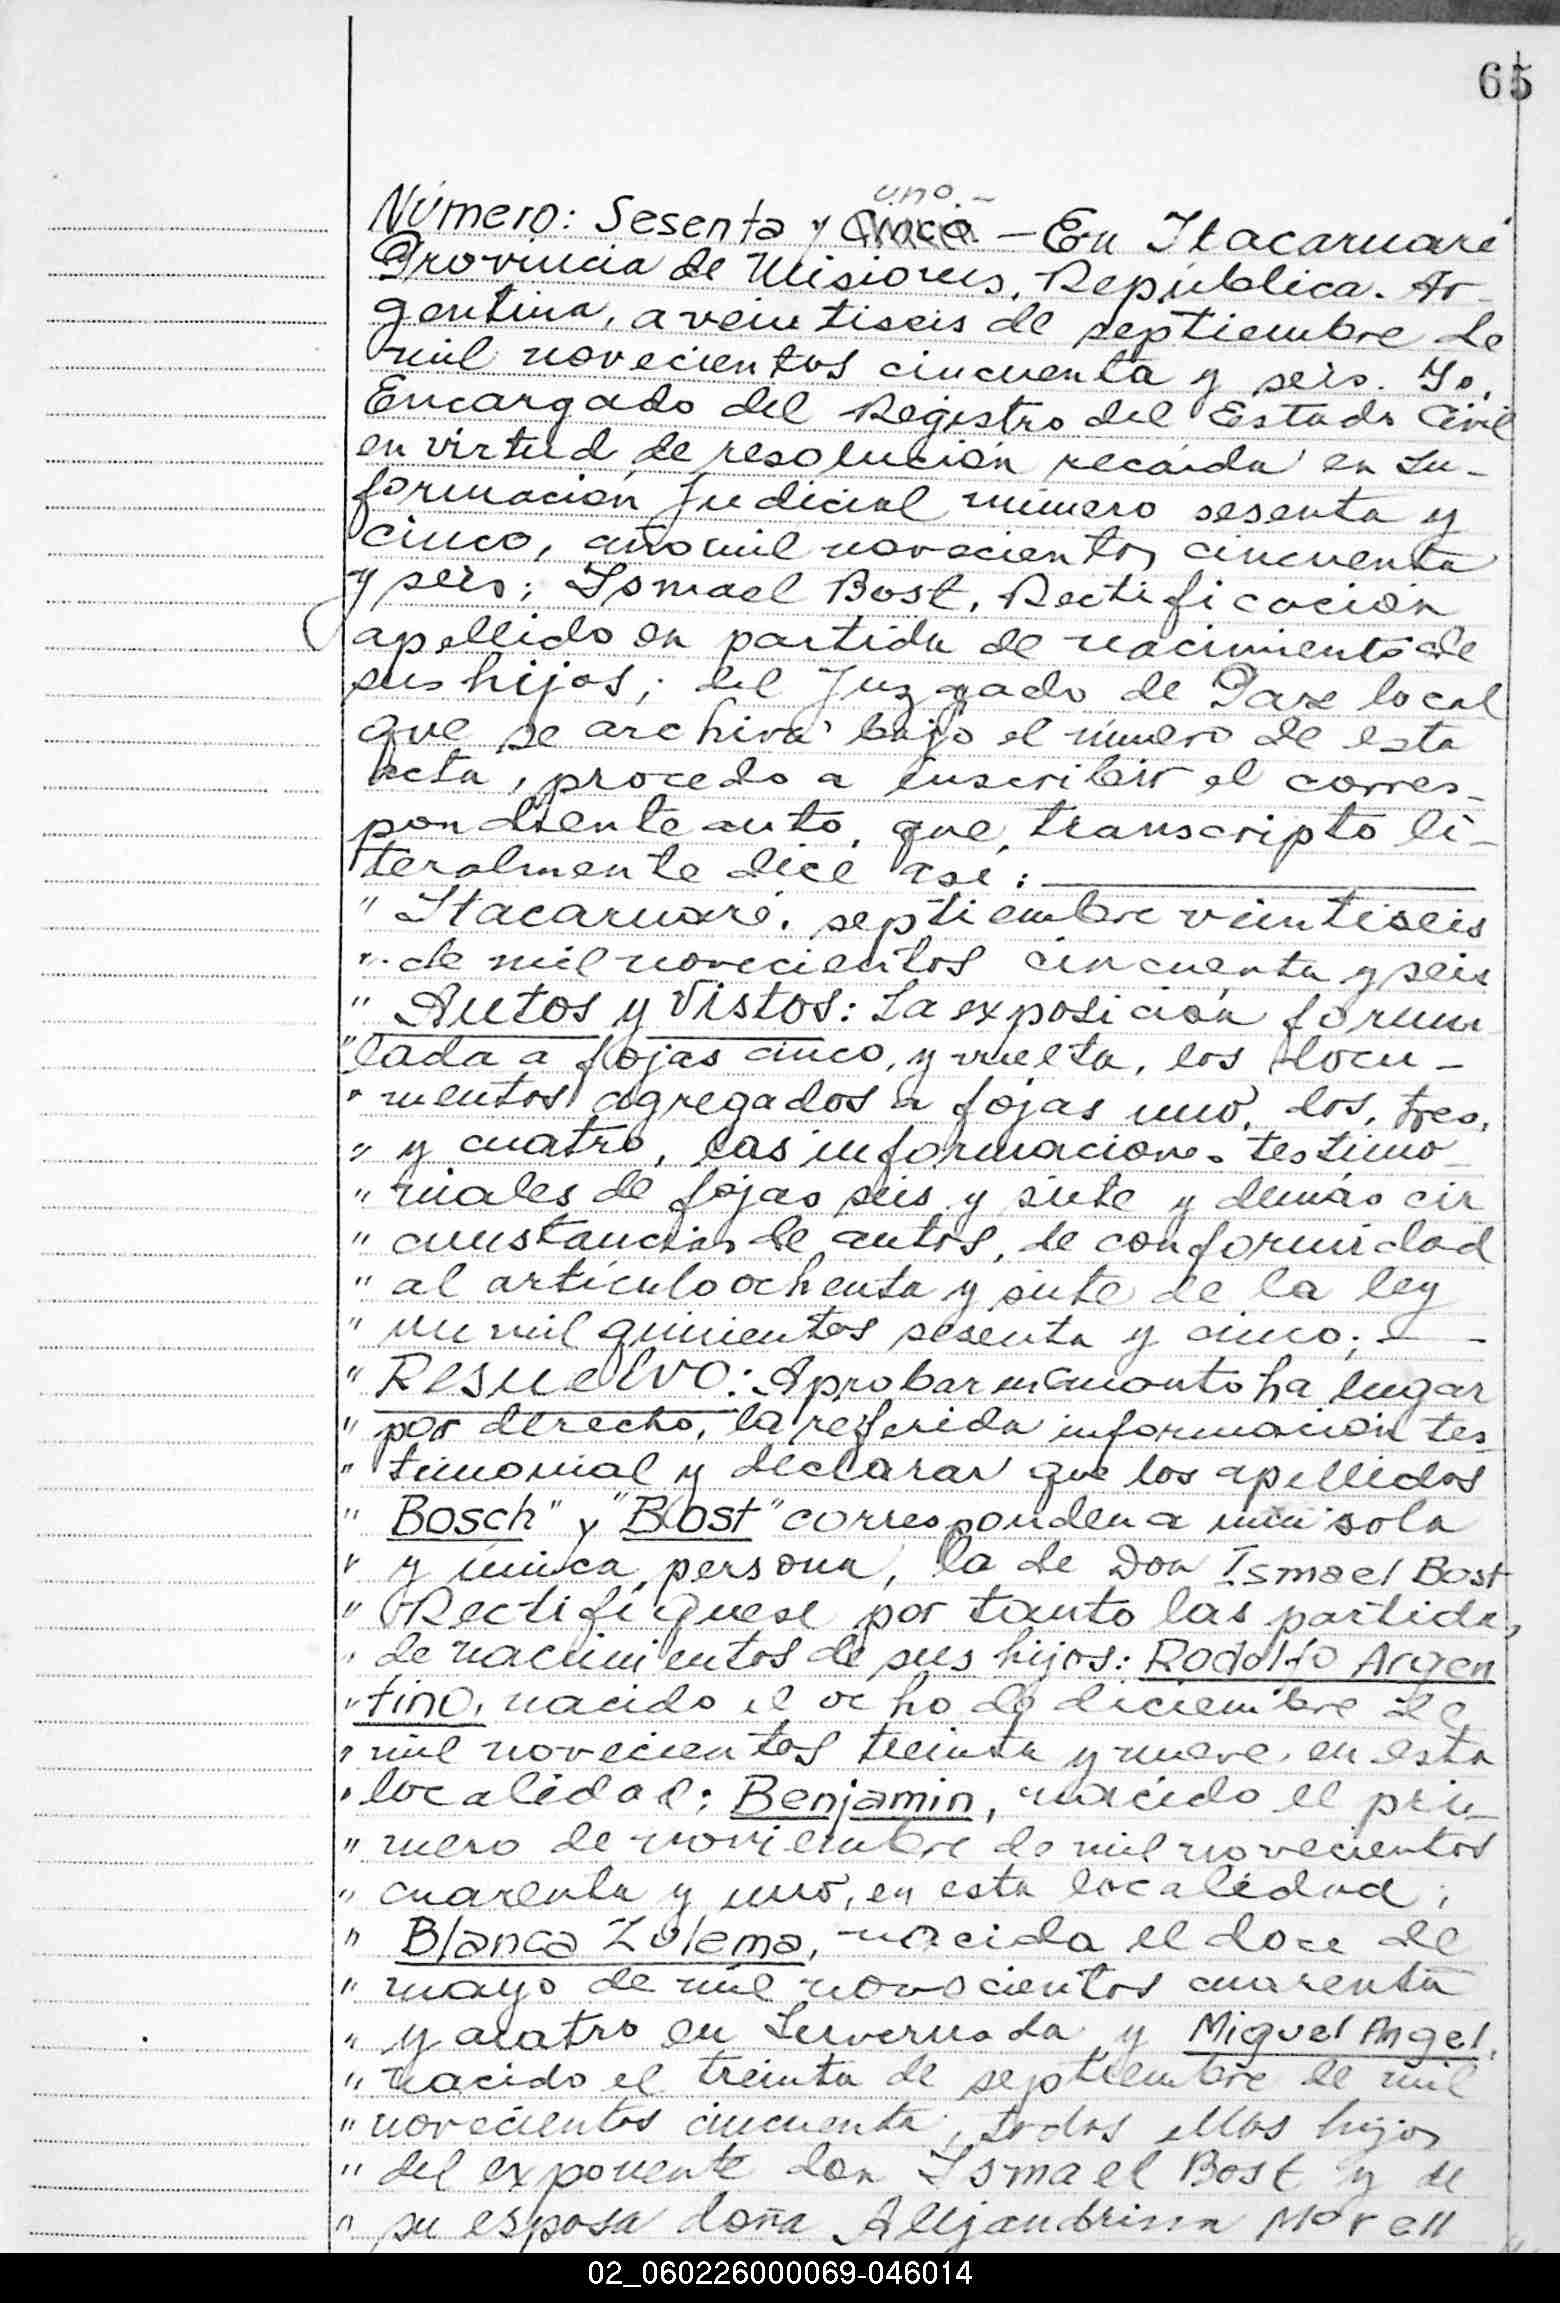 65
uno.-
Número: Sesenta y cinco. — En Itacaruaré
Provincia de Misiones, República. Ar-
gentina, a veintiseis de septiembre de
mil novecientos cincuenta y seis. Yo,
Encargado del Registro del Estado Civil
en virtud de resolución recaída en In-
formación Judicial número sesenta y
cinco, año mil novecientos cincuenta
y seis; Ismael Bost, Rectificación
apellido en partida de nacimiento de
sus hijos; del Juzgado de Paz local
que se archiva bajo el número de esta
acta, procedo a inscribir el corres-
pondiente auto, que, transcripto li-
teralmente dice así:
" Itacaruaré, septiembre veintiseis
" de mil novecientos cincuenta y seis
" Autos y Vistos: La exposición formu
" lada a fojas cinco, y vuelta, los docu-
" mentos agregados a fojas uno, dos, tres,
" y cuatro, las informaciones testimo-
" niales de fojas seis y siete y demás cir
" cunstancias de autos, de conformidad
" al artículo ochenta y siete de la ley
" un mil quinientos sesenta y cinco; —
" Resuelvo: Aprobar en cuanto ha lugar
" por derecho, la referida información tes-
" timonial y declarar que los apellidos
" Bosch" y "Bost" corresponden a una sola
" y única persona, la de Don Ismael Bost
" Rectifíquese por tanto las partidas
" de nacimientos de sus hijos: Rodolfo Argen
" tino, nacido el ocho de diciembre de
" mil novecientos treinta y nueve, en esta
" localidad; Benjamin, nacido el pri-
" mero de noviembre de mil novecientos
" cuarenta y uno, en esta localidad;
" Blanca Zulema, nacida el doce de
" mayo de mil novecientos cuarenta
" y cuatro en Invernada y Miguel Angel,
" nacido el treinta de septiembre de mil
" novecientos cincuenta, todos ellos hijos
" del exponente don Ismael Bost y de
" su esposa doña Alejandrina Morell
02_060226000069-046014